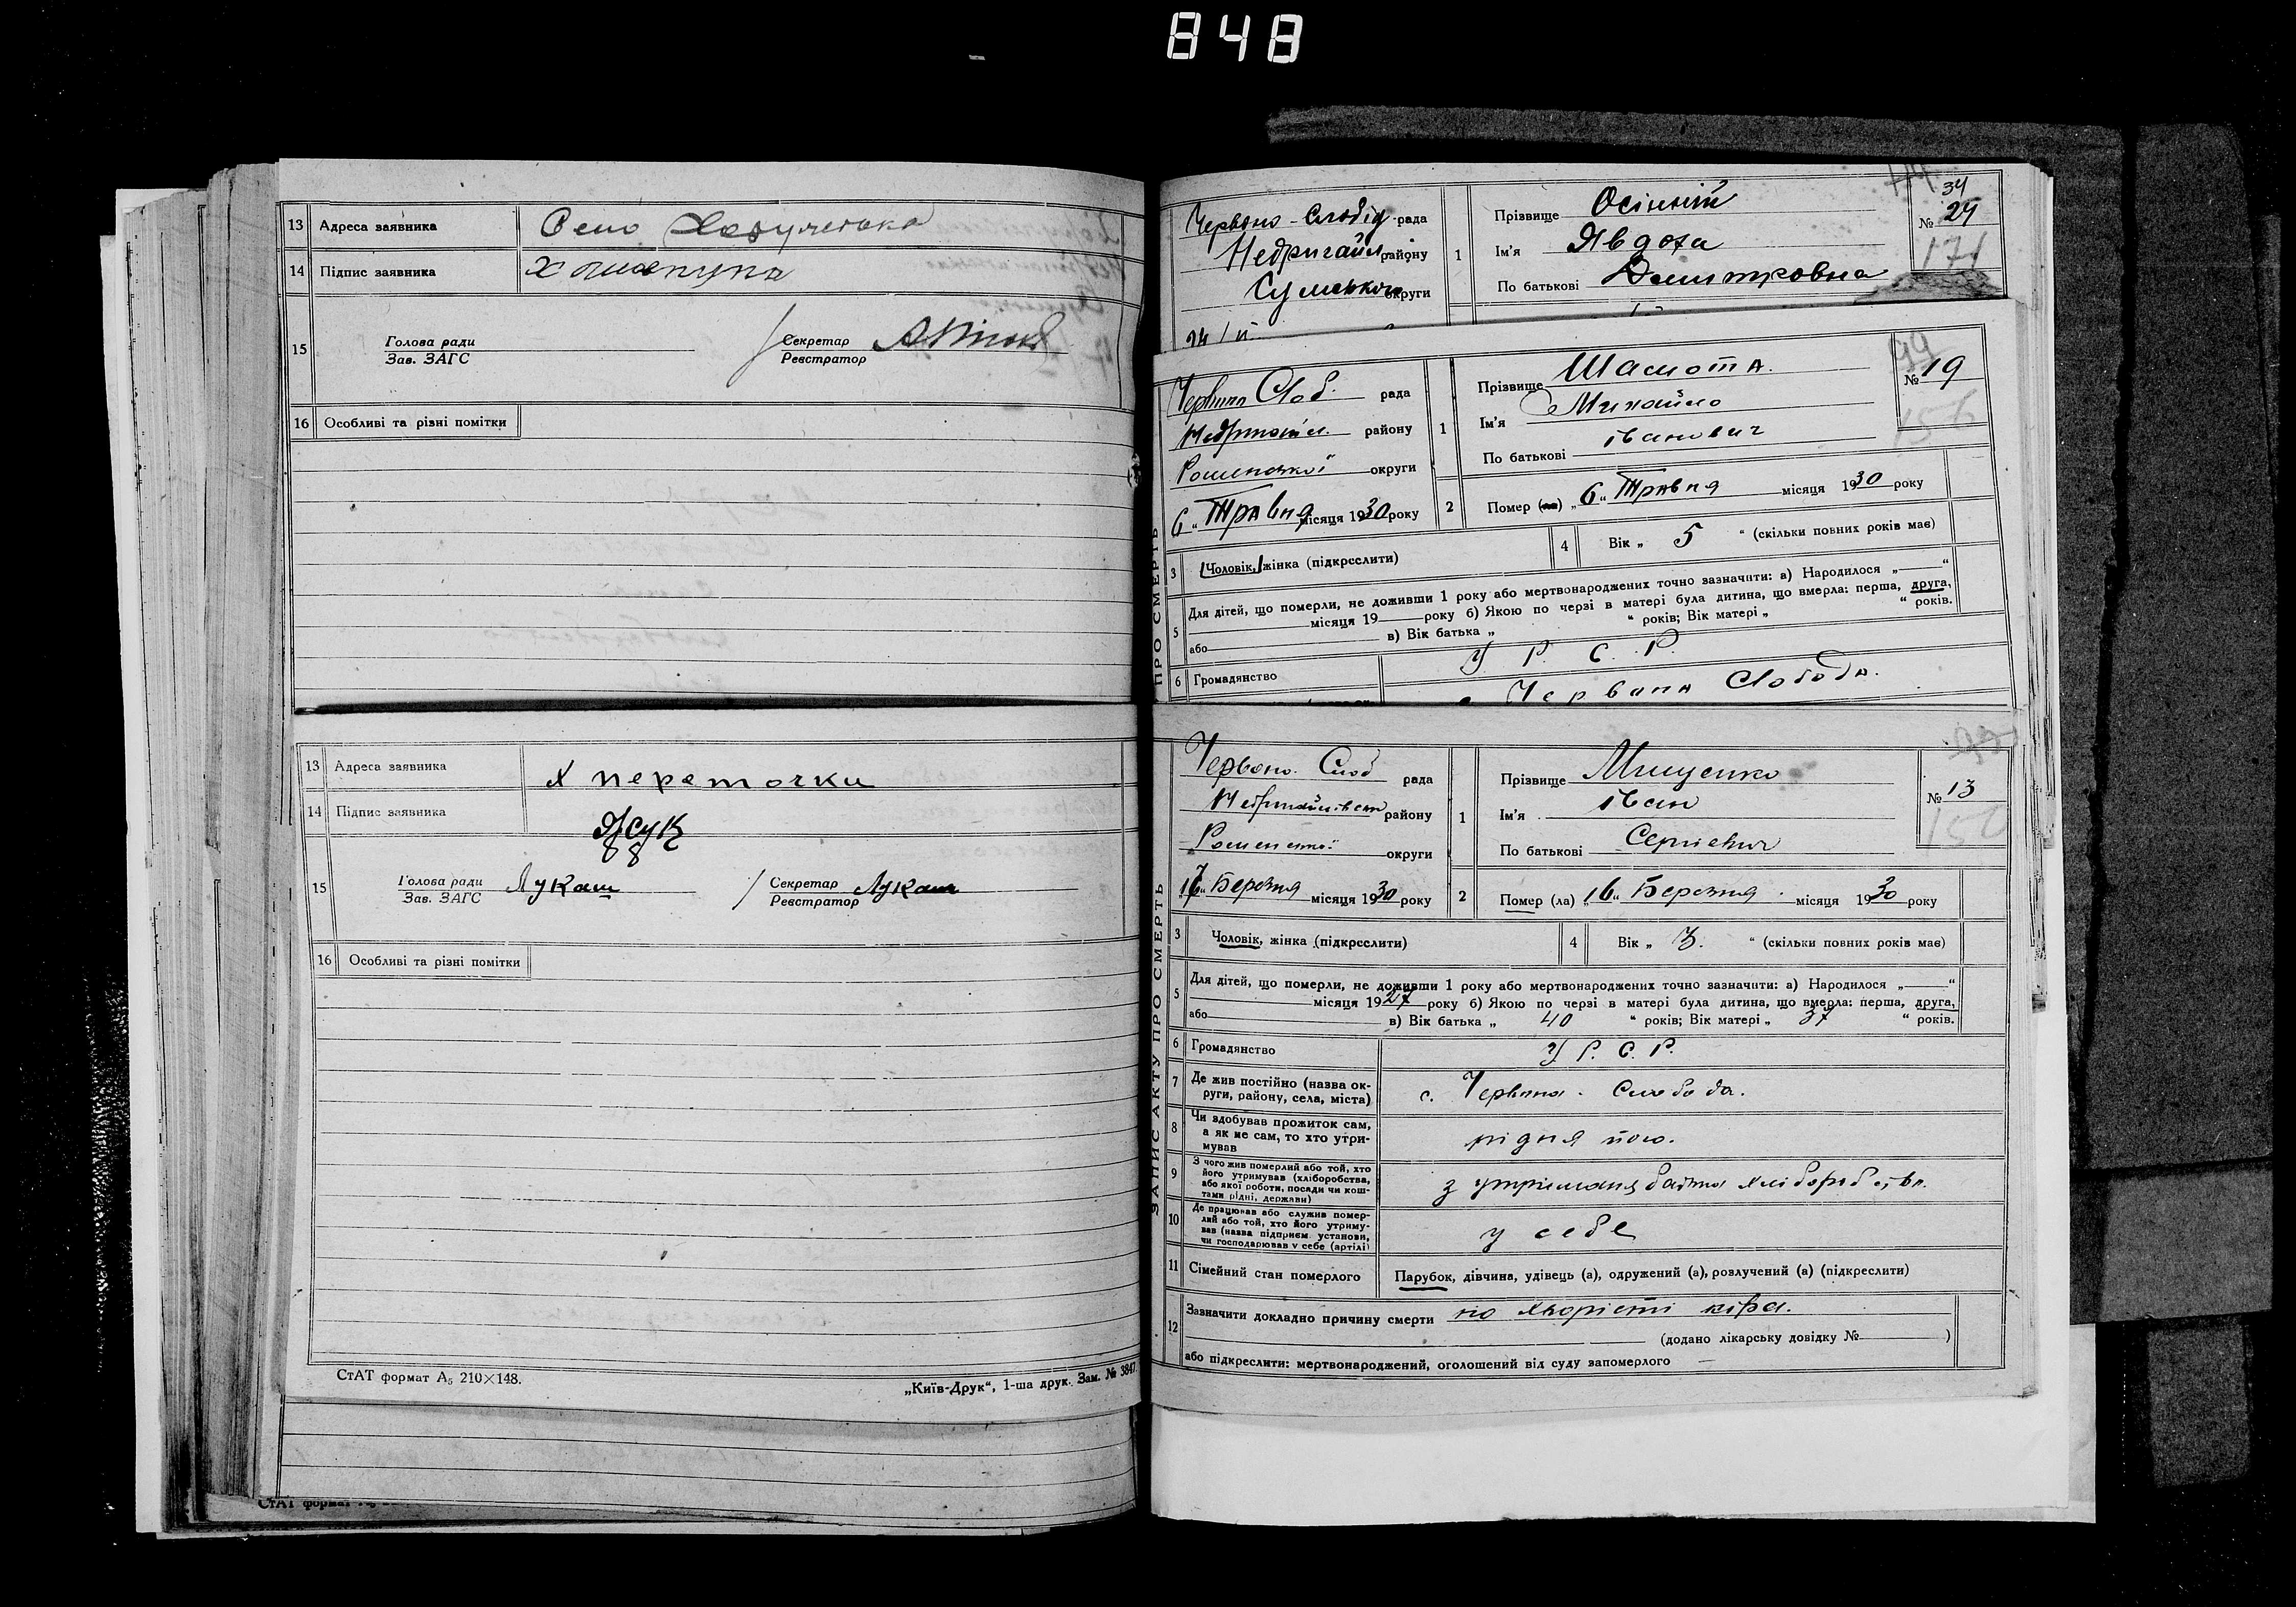 848
13 Адреса заявника Село
14 Підпис заявника
15 Голова ради
Зав. ЗАГС
Секретар
Реєстратор
16 Особливі та різні помітки
13 Адреса заявника х переточки
14 Підпис заявника Жук
15 Голова ради Лукаш Секретар Лукаш
Зав. ЗАГС Реєстратор
16 Особливі та різні помітки
СтАТ формат А₅ 210×148.
„Київ-Друк“, 1-ша друк. Зам. № 3847
СтАТ формат
Червоно-Слобід рада
Недригайл району
Сумської округи
24/II
1 Прізвище Осінній
Ім'я Явдоха
По батькові Демитровна
34
№ 29
171
Червона Слоб. рада
Недригайл. району
Роменської округи
6 „ Травня місяця 1930 року
1 Прізвище Шамота.
Ім'я Михайло
По батькові іванович
99
№ 19
156
2 Помер (ла) „ 6 „ Травня місяця 1930 року
3 Чоловік, жінка (підкреслити)
4 Вік „ 5 “ (скільки повних років має)
5 Для дітей, що померли, не доживши 1 року або мертвонароджених точно зазначити: а) Народилося „ “
місяця 19 року б) Якою по черзі в матері була дитина, що вмерла: перша, друга,
або в) Вік батька „ “ років; Вік матері „ “ років.
6 Громадянство У. Р. С. Р.
с. Червона Слобода.
ПРО СМЕРТЬ
Червоно. Слоб рада
Недригайлівськ району
Роменської округи
16 „ Березня місяця 1930 року
1 Прізвище Мищенко
Ім'я іван
По батькові Сергієвич
№ 13
150
2 Помер (ла) „ 16 „ Березня місяця 1930 року
3 Чоловік, жінка (підкреслити)
4 Вік „ 3. “ (скільки повних років має)
5 Для дітей, що померли, не доживши 1 року або мертвонароджених точно зазначити: а) Народилося „ “
місяця 1927 року б) Якою по черзі в матері була дитина, що вмерла: перша, друга,
або в) Вік батька „ 40 “ років; Вік матері „ 37 “ років.
6 Громадянство У. Р. С. Р.
7 Де жив постійно (назва ок-
руги, району, села, міста) с. Червона. Слобода.
8 Чи здобував прожиток сам,
а як не сам, то хто утри-
мував рідня його.
9 З чого жив померлий або той, хто
його утримував (хліборобства,
або якої роботи, посади чи кош-
тами рідні, держави) з утриманя батька хліборобства.
10 Де працював або служив помер-
лий або той, хто його утриму-
вав (назва підприєм. установи,
чи господарював у себе (артілі) у себе
11 Сімейний стан померлого Парубок, дівчина, удівець (а), одружений (а), розлучений (а) (підкреслити)
12 Зазначити докладно причину смерти по хворісті кіра.
(додано лікарську довідку № )
або підкреслити: мертвонароджений, оголошений від суду запомерлого
ЗАПИС АКТУ ПРО СМЕРТЬ